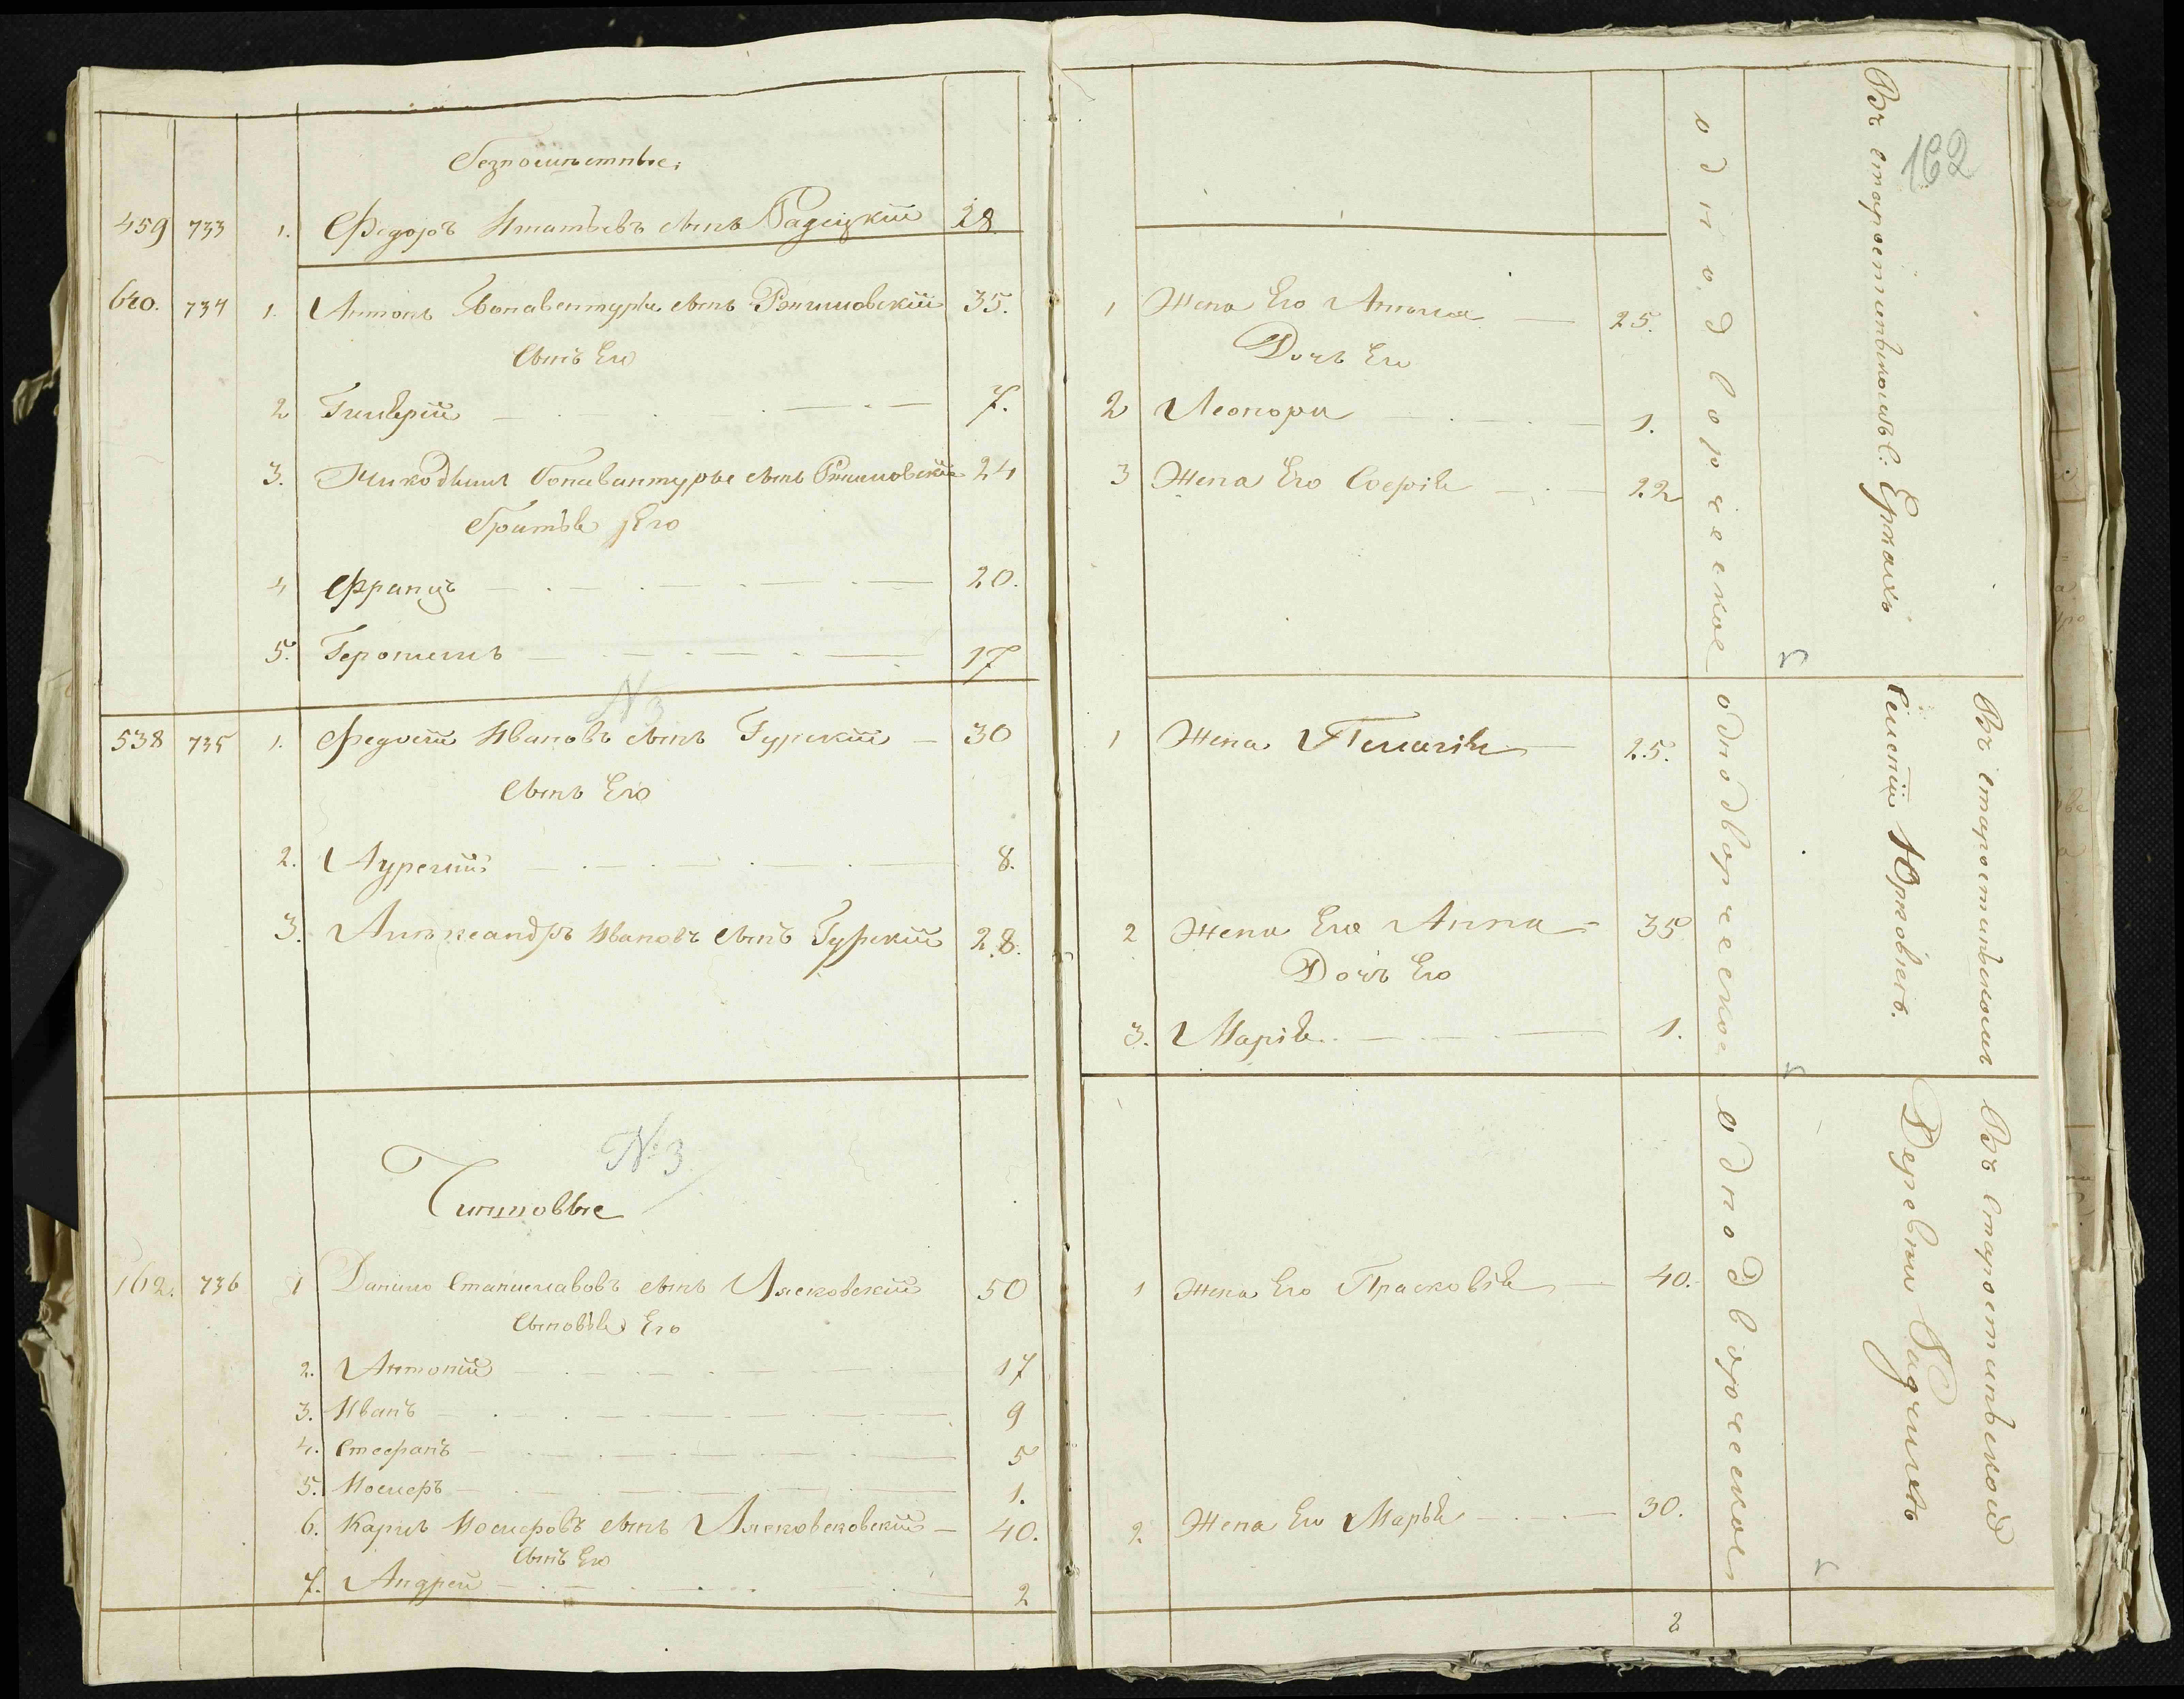 Безпомѣстные:
459 733 1. Федоръ Игнатьевъ сынъ Радецкій 28
640. 734 1. Антонъ Бонавентуры сынъ 35.
сынъ Его
2 Гилярій 7.
3. Никодимъ Бонавантуры сынъ 24
Братья Его
4 Францъ 20.
5. Геронимъ 17
N 3
538 735 1. Федосій Ивановъ сынъ Гурскій 30
сынъ Его
2. Аурелій 8.
3. Александръ Ивановъ сынъ Гурскій 28.
№ 3
Чиншовые
162. 736 1 Данило Станиславовъ сынъ Лясковскій 50
сыновья Его
2. Антоній 17
3. Иванъ 9
4. Стефанъ 5
5. Иосифъ 1.
6. Карлъ Иосифовъ сынъ 40.
сынъ Его
7. Андрей 2
162
1 Жена Его Антонія 25.
Дочь Его
2 Леонора 1.
3 Жена Его Софія 22
однодворческое
Въ старостинскомъ:
1 Жена Пелагія 25.
2 Жена Его Анна 35
Дочь Его
3. Марія 1.
однодворческое
Въ старостинскомъ
Селеніи Юрковцахъ.
1 Жена Его Прасковія 40.
2. Жена Его Марья 30.
однодворческое
Въ Старостинской
Деревни
2